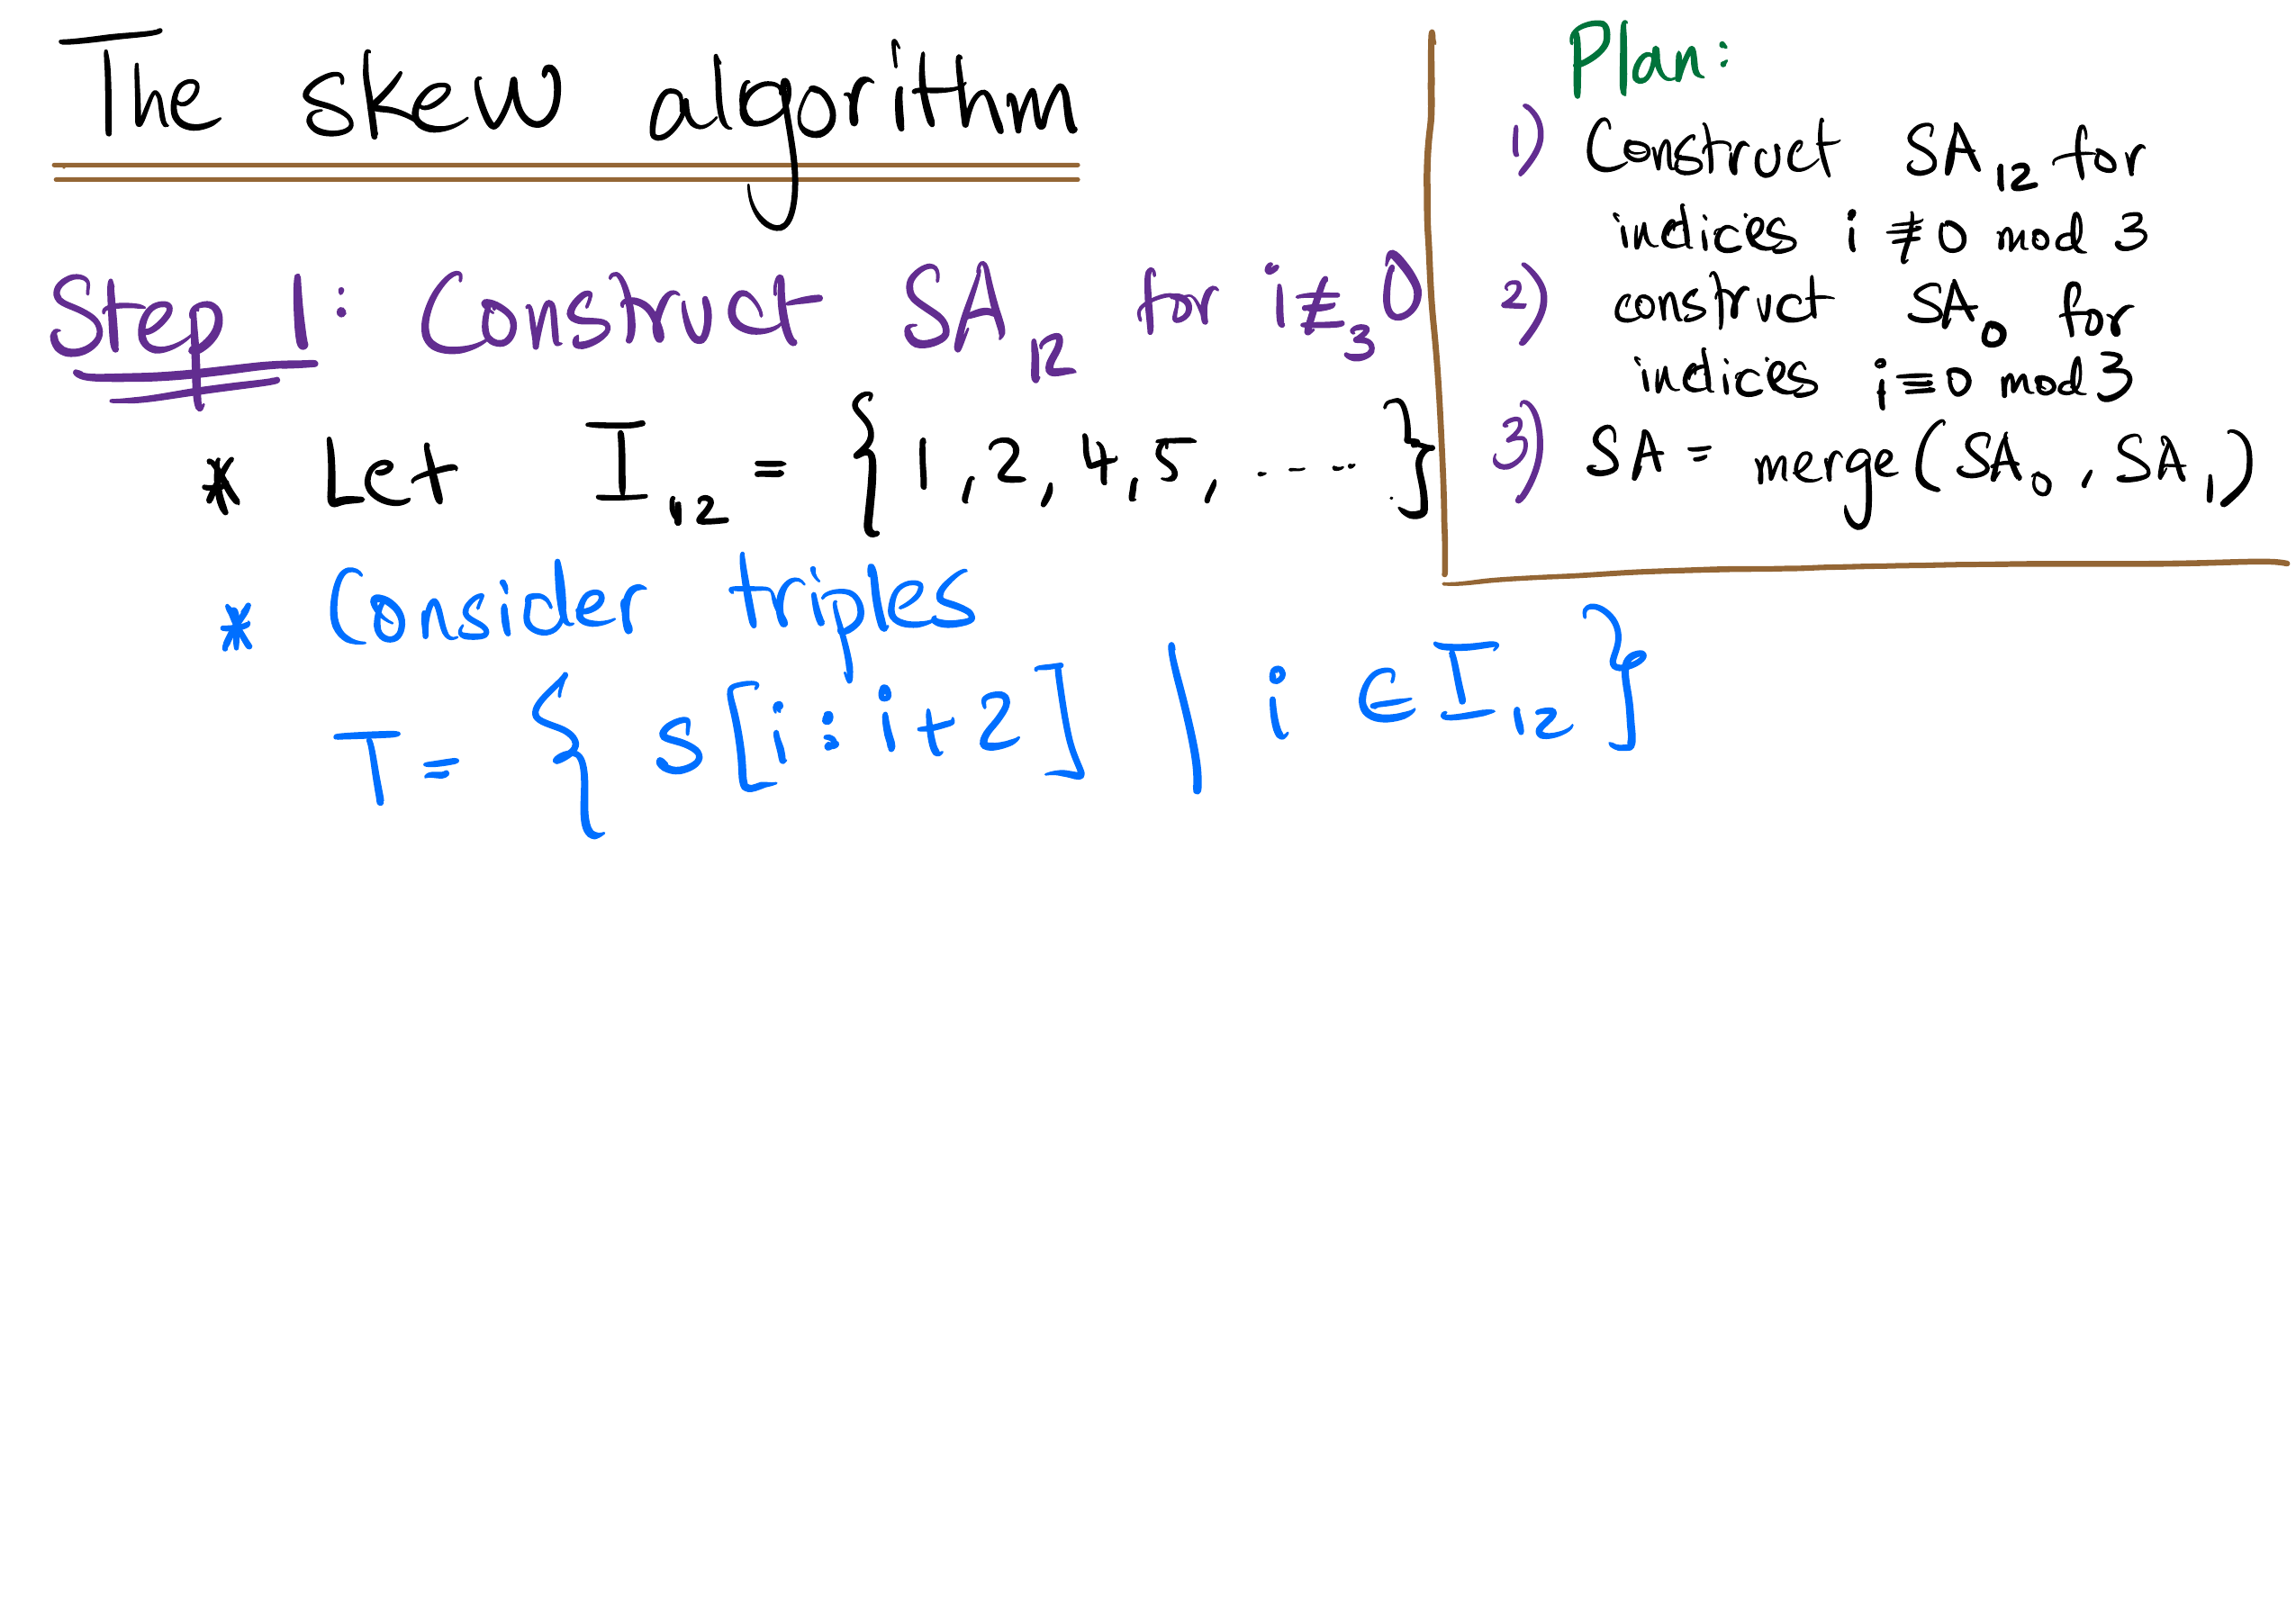 The skew algorithm
Step 1: Construct SA₁₂ for i≢₃0
* Let I₁,₂ = {1,2,4,5, ....}
* Consider triples
T = { s[i:i+2] | i ∈ I₁₂ }
Plan:
1) Construct SA₁₂ for
indices i ≢ 0 mod 3
2) construct SA₀ for
indices i≡0 mod 3
3) SA = merge(SA₀, SA₁)